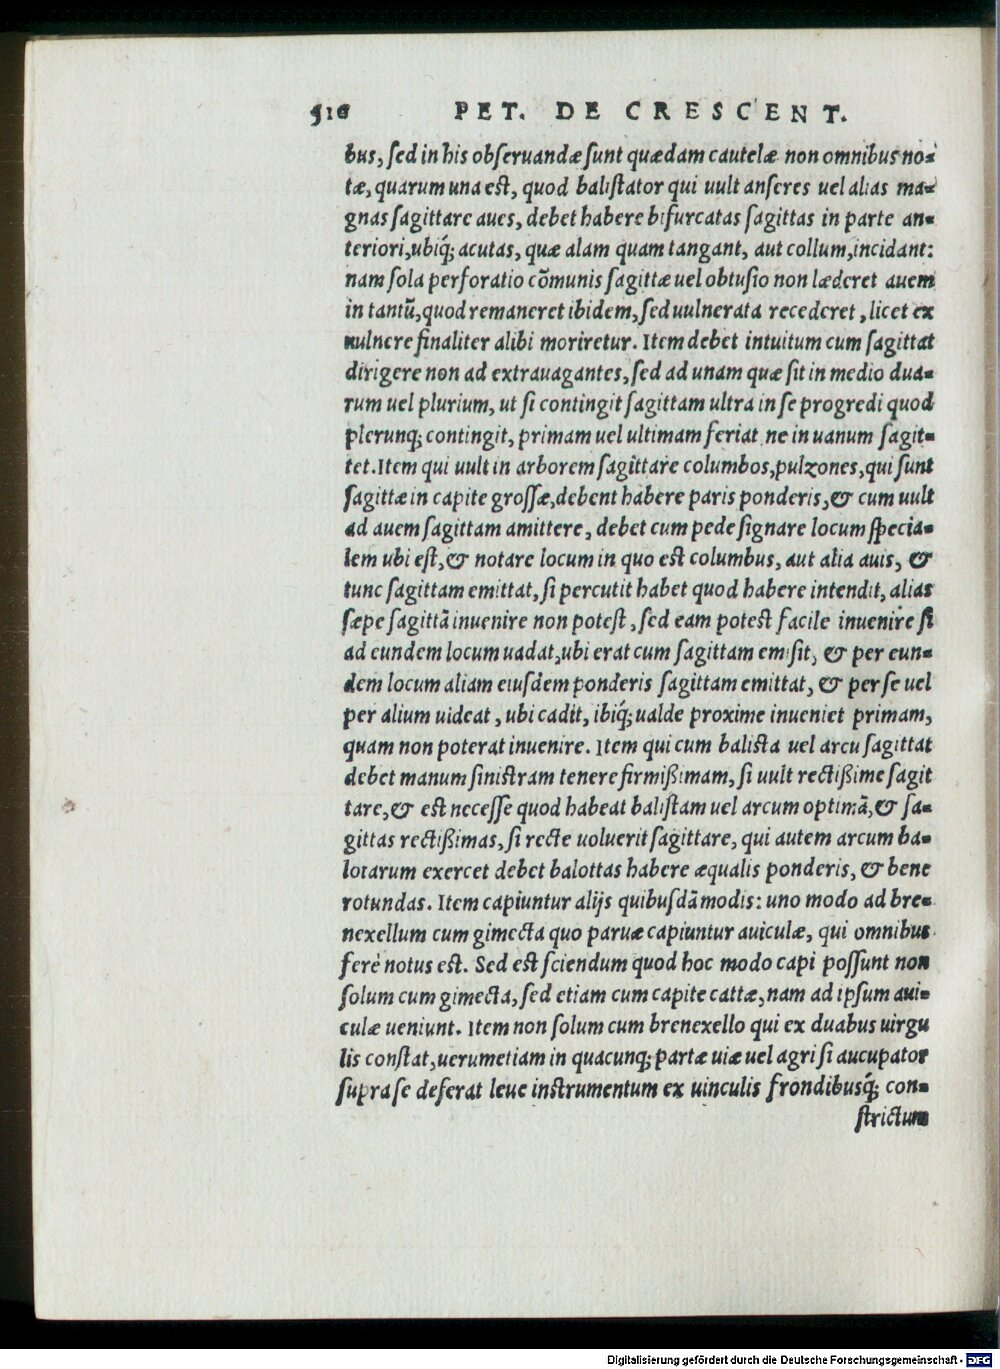 516 PET. DE CRESCENT.
bus, ſed in his obſeruandæ ſunt quædam cautelæ non omnibus no⸗
tæ, quarum una eſt, quod baliſtator qui uult anſeres uel alias ma⸗
gnas ſagittare aues, debet habere bifurcatas ſagittas in parte an⸗
teriori, ubiq́; acutas, quæ alam quam tangant, aut collum, incidant:
nam ſola perforatio cõmunis ſagittæ uel obtuſio non læderet auem
in tantũ, quod remaneret ibidem, ſed uulnerata recederet, licet ex
uulnere finaliter alibi moriretur. Item debet intuitum cum ſagittat
dirigere non ad extrauagantes, ſed ad unam quæ ſit in medio dua⸗
rum uel plurium, ut ſi contingit ſagittam ultra in ſe progredi quod
plerunq; contingit, primam uel ultimam feriat ne in uanum ſagit⸗
tet. Item qui uult in arborem ſagittare columbos, pulzones, qui ſunt
ſagittæ in capite groſſæ, debent habere paris ponderis, & cum uult
ad auem ſagittam amittere, debet cum pede ſignare locum ſpecia⸗
lem ubi eſt, & notare locum in quo eſt columbus, aut alia auis, &
tunc ſagittam emittat, ſi percutit habet quod habere intendit, alias
ſæpe ſagittã inuenire non poteſt, ſed eam poteſt facile inuenire ſi
ad eundem locum uadat, ubi erat cum ſagittam emiſit, & per eun⸗
dem locum aliam eiuſdem ponderis ſagittam emittat, & per ſe uel
per alium uideat, ubi cadit, ibiq́; ualde proxime inueniet primam,
quam non poterat inuenire. Item qui cum baliſta uel arcu ſagittat
debet manum ſiniſtram tenere firmißimam, ſi uult rectißime ſagit
tare, & eſt neceſſe quod habeat baliſtam uel arcum optimã, & ſa⸗
gittas rectißimas, ſi recte uoluerit ſagittare, qui autem arcum ba⸗
lotarum exercet debet balottas habere æqualis ponderis, & bene
rotundas. Item capiuntur alijs quibuſdã modis: uno modo ad bre⸗
nexellum cum gimecta quo paruæ capiuntur auiculæ, qui omnibus
ferè notus eſt. Sed eſt ſciendum quod hoc modo capi poſſunt non
ſolum cum gimecta, ſed etiam cum capite cattæ, nam ad ipſum aui⸗
culæ ueniunt. Item non ſolum cum brenexello qui ex duabus uirgu
lis conſtat, uerumetiam in quacunq; partæ uiæ uel agri ſi aucupator
ſupra ſe deferat leue inſtrumentum ex uinculis frondibusq́; con⸗
ſtrictum
Digitalisierung gefördert durch die Deutsche Forschungsgemeinschaft - DFG